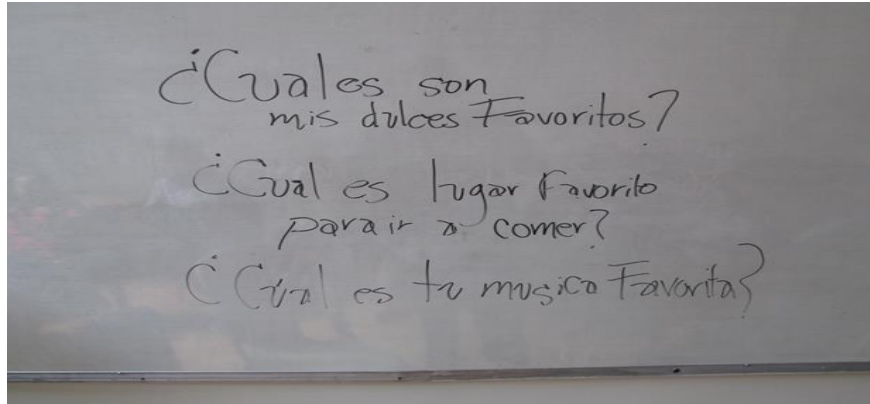 ¿Cuales son
mis dulces Favoritos?
¿Cual es lugar Favorito
para ir a comer?
¿Cúal es tu musica Favorita?